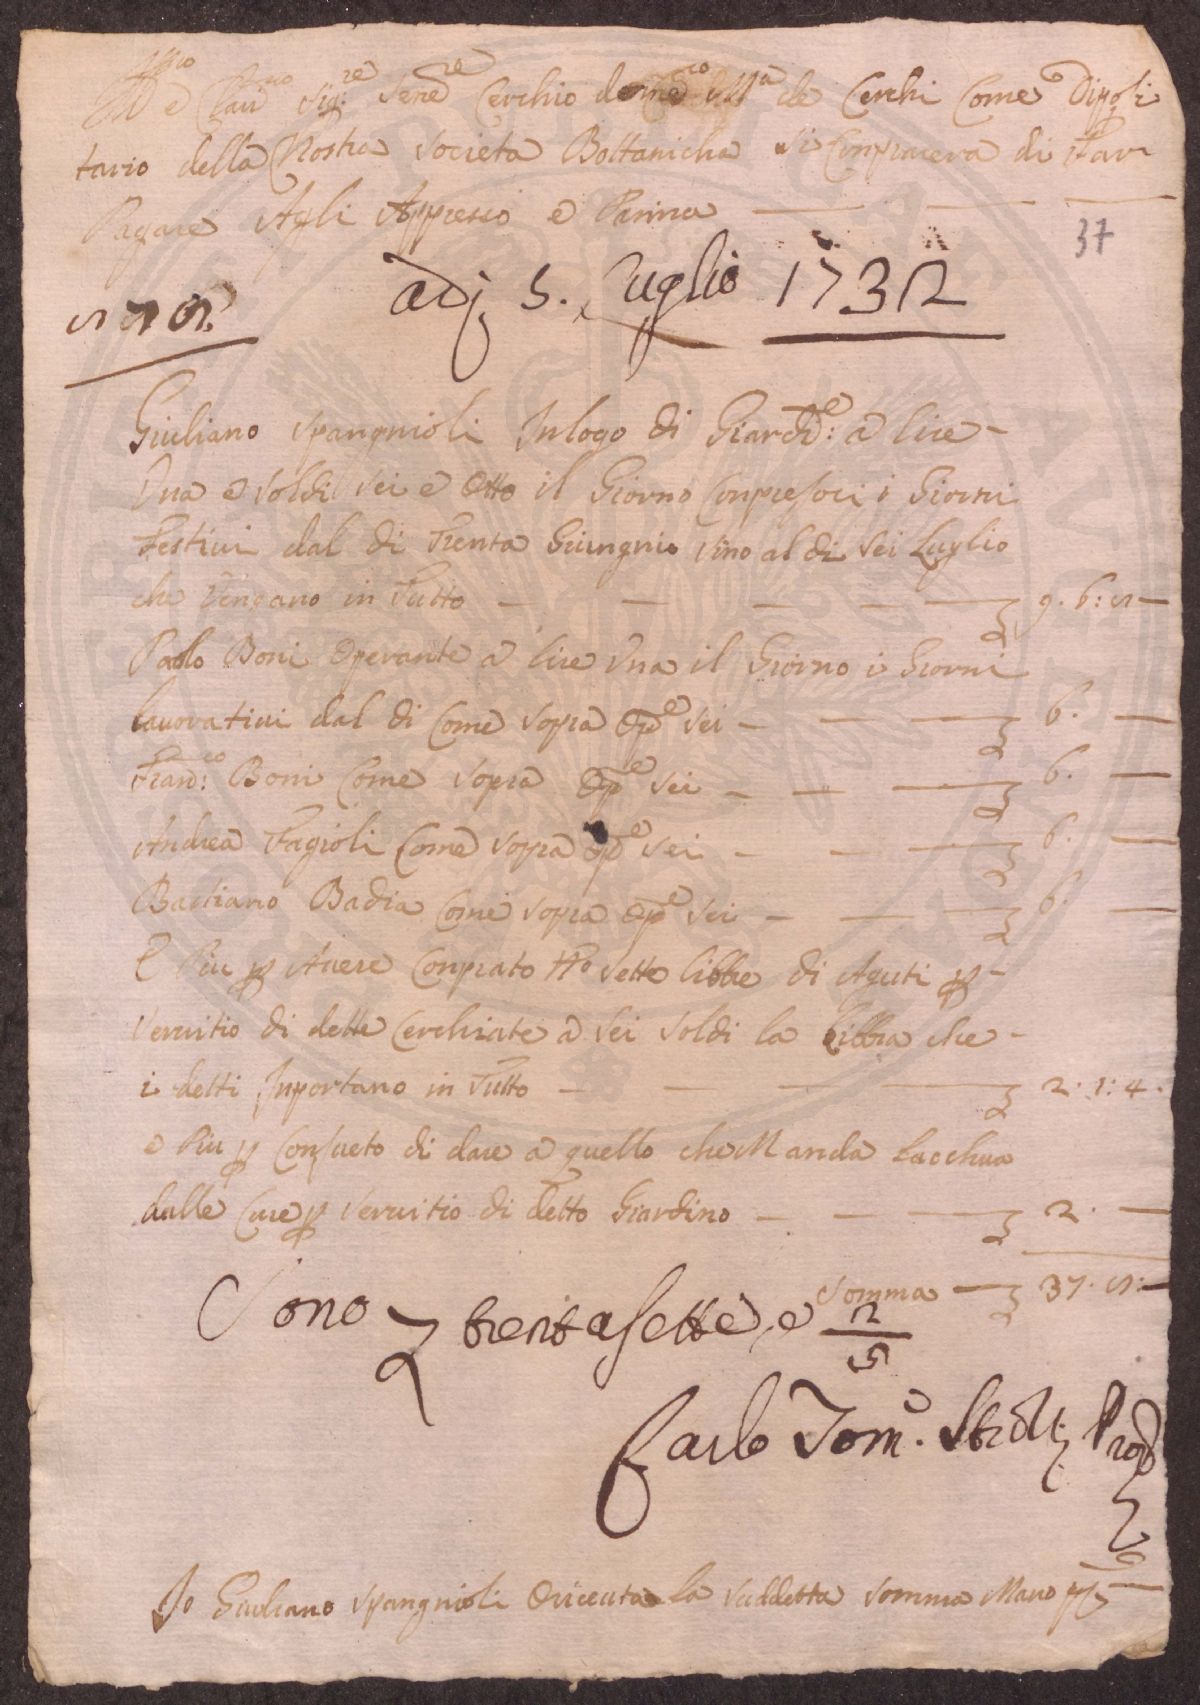 Ill.mo e Clar.mo Sig.re Sene.re Cerchio de Cerchi Come Diposi
tario della Nostra Società Bottanicha si Conpiacera di Far
Pagare Agli Appresso e Prima
37
adi 5. Luglio 1732
Giuliano Spangnioli Inlogo di Giardi.e a lire
Una e soldi sei e Otto il Giorno Conpresoci i Giorni
Festivi dal di Trenta Giungnio sino al di Sei Luglio
che Vengano in Tutto 9. 6: 8
Paolo Boni Operante a lire Una il Giorno i Giorni
lavorativi dal di Come sopra Op.e sei 6.
Fran.co Boni Come sopra Op.e sei 6.
Andrea Fagioli Come sopra Op.e sei 6.
Bastiano Badia Come sopra Op.e sei 6.
E Piu p Avere Conprato sette libbre di Aguti p
servitio di dette Cerchiate a sei soldi la libbra che
i detti Inportano in Tutto 2. 1: 4.
e Piu p Consueto di dare a quello che Manda Lacchua
dalle Cure p servitio di Detto Giardino 2.
Somma 37. 8:
Sono trentasette e
Carlo Tom.o
Io Giuliano Spangnioli O riceuta la suddetta somma Mano pp.a